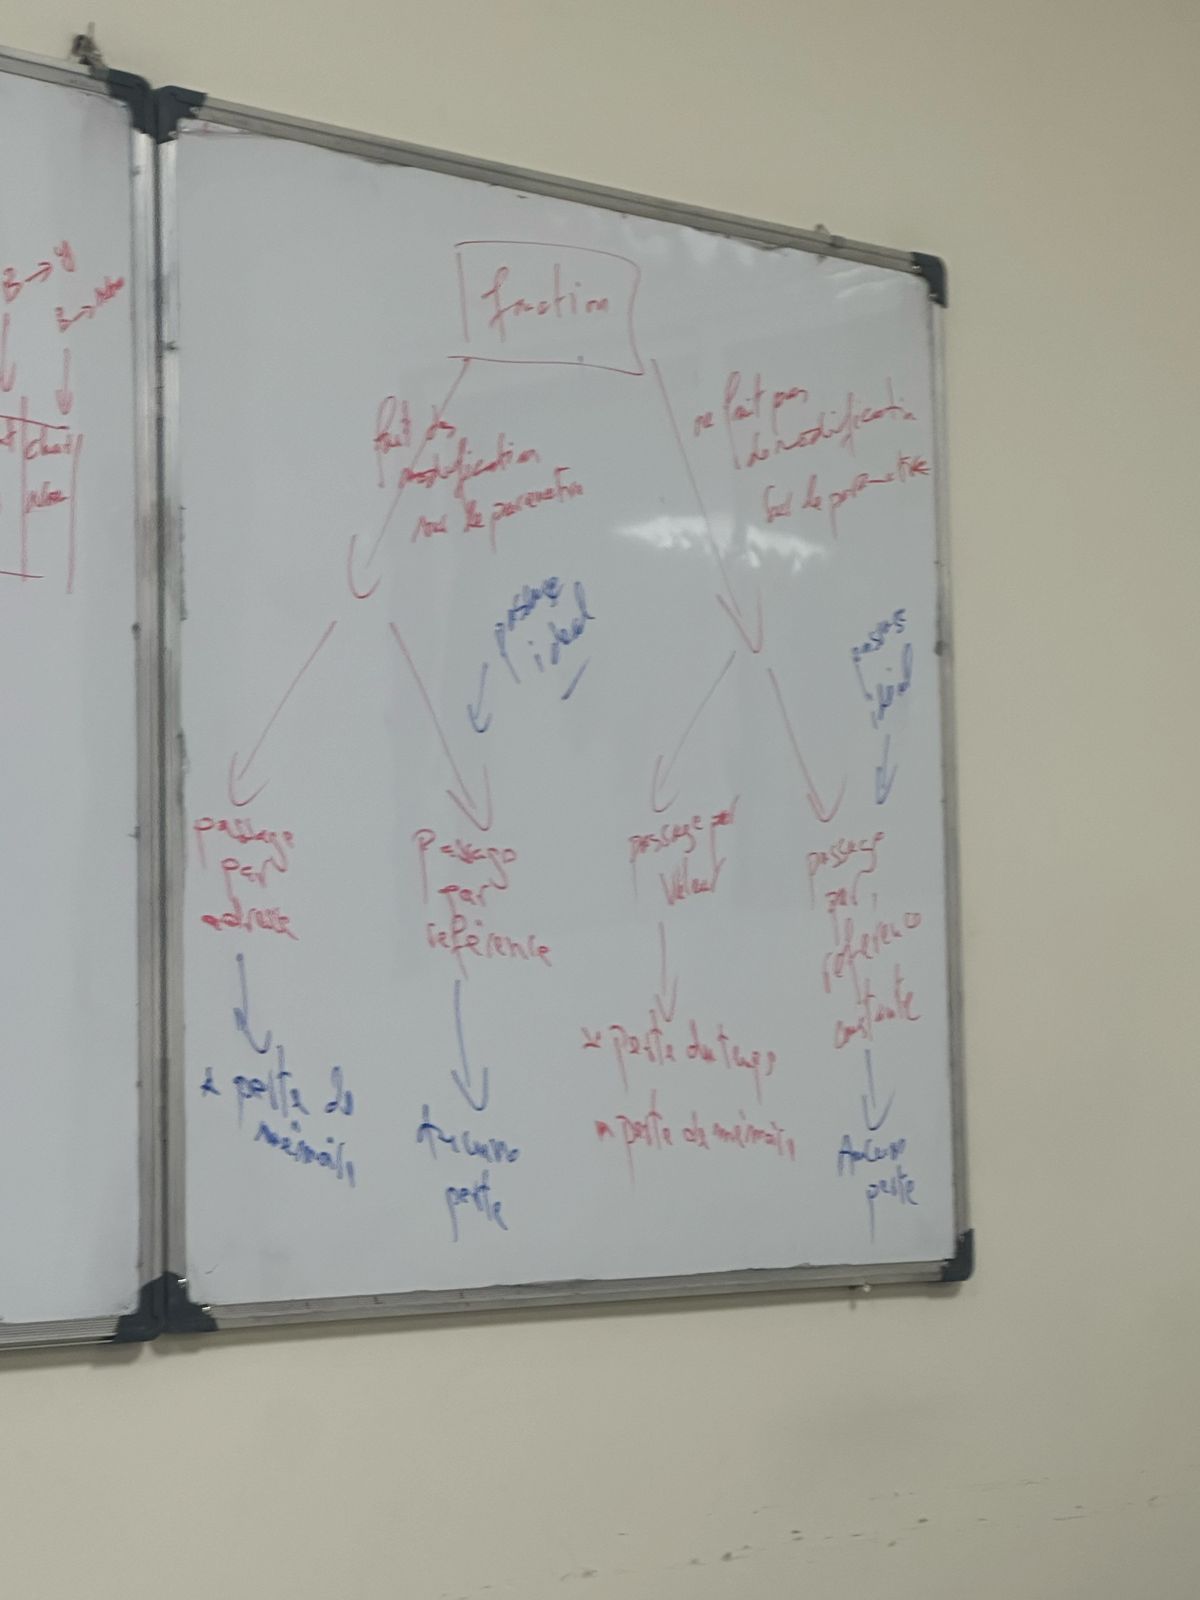 B → y
B →
chat
fonction
fait des
modification
sur le parametre
ne fait pas
de modification
sur le parametre
passage
ideal
passage
ideal
passage
par
adresse
passage
par
référence
passage par
valeur
passage
par
référence
constante
* perte de
mémoire
Aucune
perte
* perte du temps
* perte de mémoire
Aucune
perte